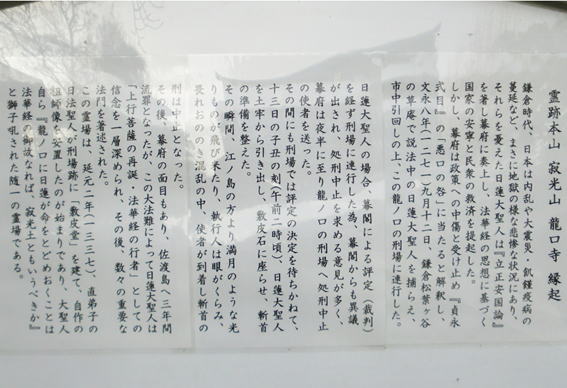 霊跡本山 寂光山 龍口寺 縁起
鎌倉時代、日本は内乱や大震災・飢饉疫病の
蔓延など、まさに地獄の様な悲惨な状況にあり、
それらを憂えた日蓮大聖人は『立正安国論』
を著し幕府に奏上し、法華経の思想に基づく
国家の安寧と民衆の救済を提起した。
しかし、幕府は政策への中傷と受け止め『貞永
式目』の「悪口の咎」に当たると解釈し、
文永八年(一二七一)九月十二日、鎌倉松葉ヶ谷
の草庵で説法中の日蓮大聖人を捕らえ、
市中引回しの上、この龍ノ口の刑場に連行した。
日蓮大聖人の場合、幕閣による評定(裁判)
を経ず刑場に連行した為、幕閣からも異議
が出され、処刑中止を求める意見が多く、
幕府は夜半に至り龍ノ口の刑場へ処刑中止
の使者を送った。
その間にも刑場では評定の決定を待ちかねて、
十三日の子丑の刻(午前二時頃)、日蓮大聖人
を土牢から引き出し、敷皮石に座らせ、斬首
の準備を整えた。
その瞬間、江ノ島の方より満月のような光
りものが飛び来たり、執行人は眼がくらみ、
畏れおののき、混乱の中、使者が到着し斬首の
刑は中止となった。
その後、幕府の面目もあり、佐渡島へ三年間
流罪となったが、この大法難によって日蓮大聖人は
「上行菩薩の再誕・法華経の行者」としての
信念を一層深められ、その後、数々の重要な
法門を著述された。
この霊場は、延元二年(一三三七)、直弟子の
日法聖人が刑場跡に「敷皮堂」を建て、自作の
祖師像を安置したのが始まりであり、大聖人
自ら『龍ノ口に日蓮が命をとどめおくことは
法華経の御故なれば、寂光土ともいうべきか』
と獅子吼された随一の霊場である。